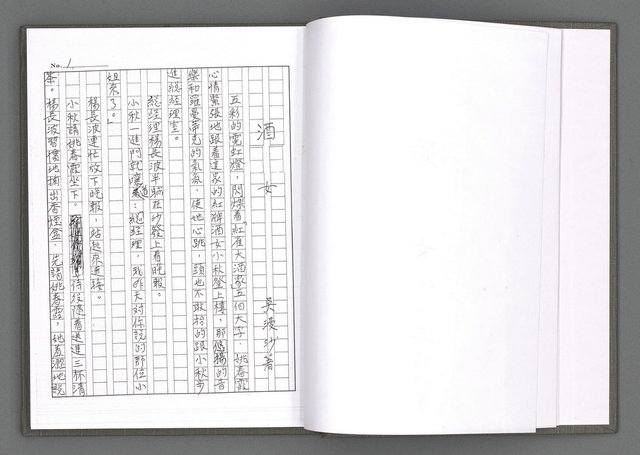 No. 1
酒女
吳漫沙著
五彩的霓虹燈,閃爍着「紅雀大酒家」五個大字。姚春霞
心情緊張地跟着這家的紅牌酒女小秋登上樓,那悠揚的音
樂和羅曼蒂克的氣氛,使她心跳,頭也不敢抬的跟小秋步
進總經理室。
總經理楊長波半躺在沙發上看晚報。
小秋一進門就嚷道:總經理,我昨天對你說的那位小
姐來了。」
楊長波連忙放下晚報,站起來迎接。
小秋請姚春霞坐下。侍役隨着送進三杯清
茶。楊長波習慣地摘出香煙盒,先請姚春霞,她羞澀地說